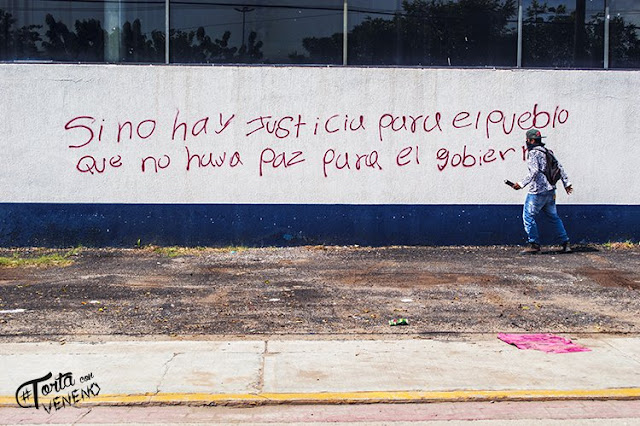 Si no hay justicia para el pueblo
que no haya paz para el gobiern
#Torta con
VENENO